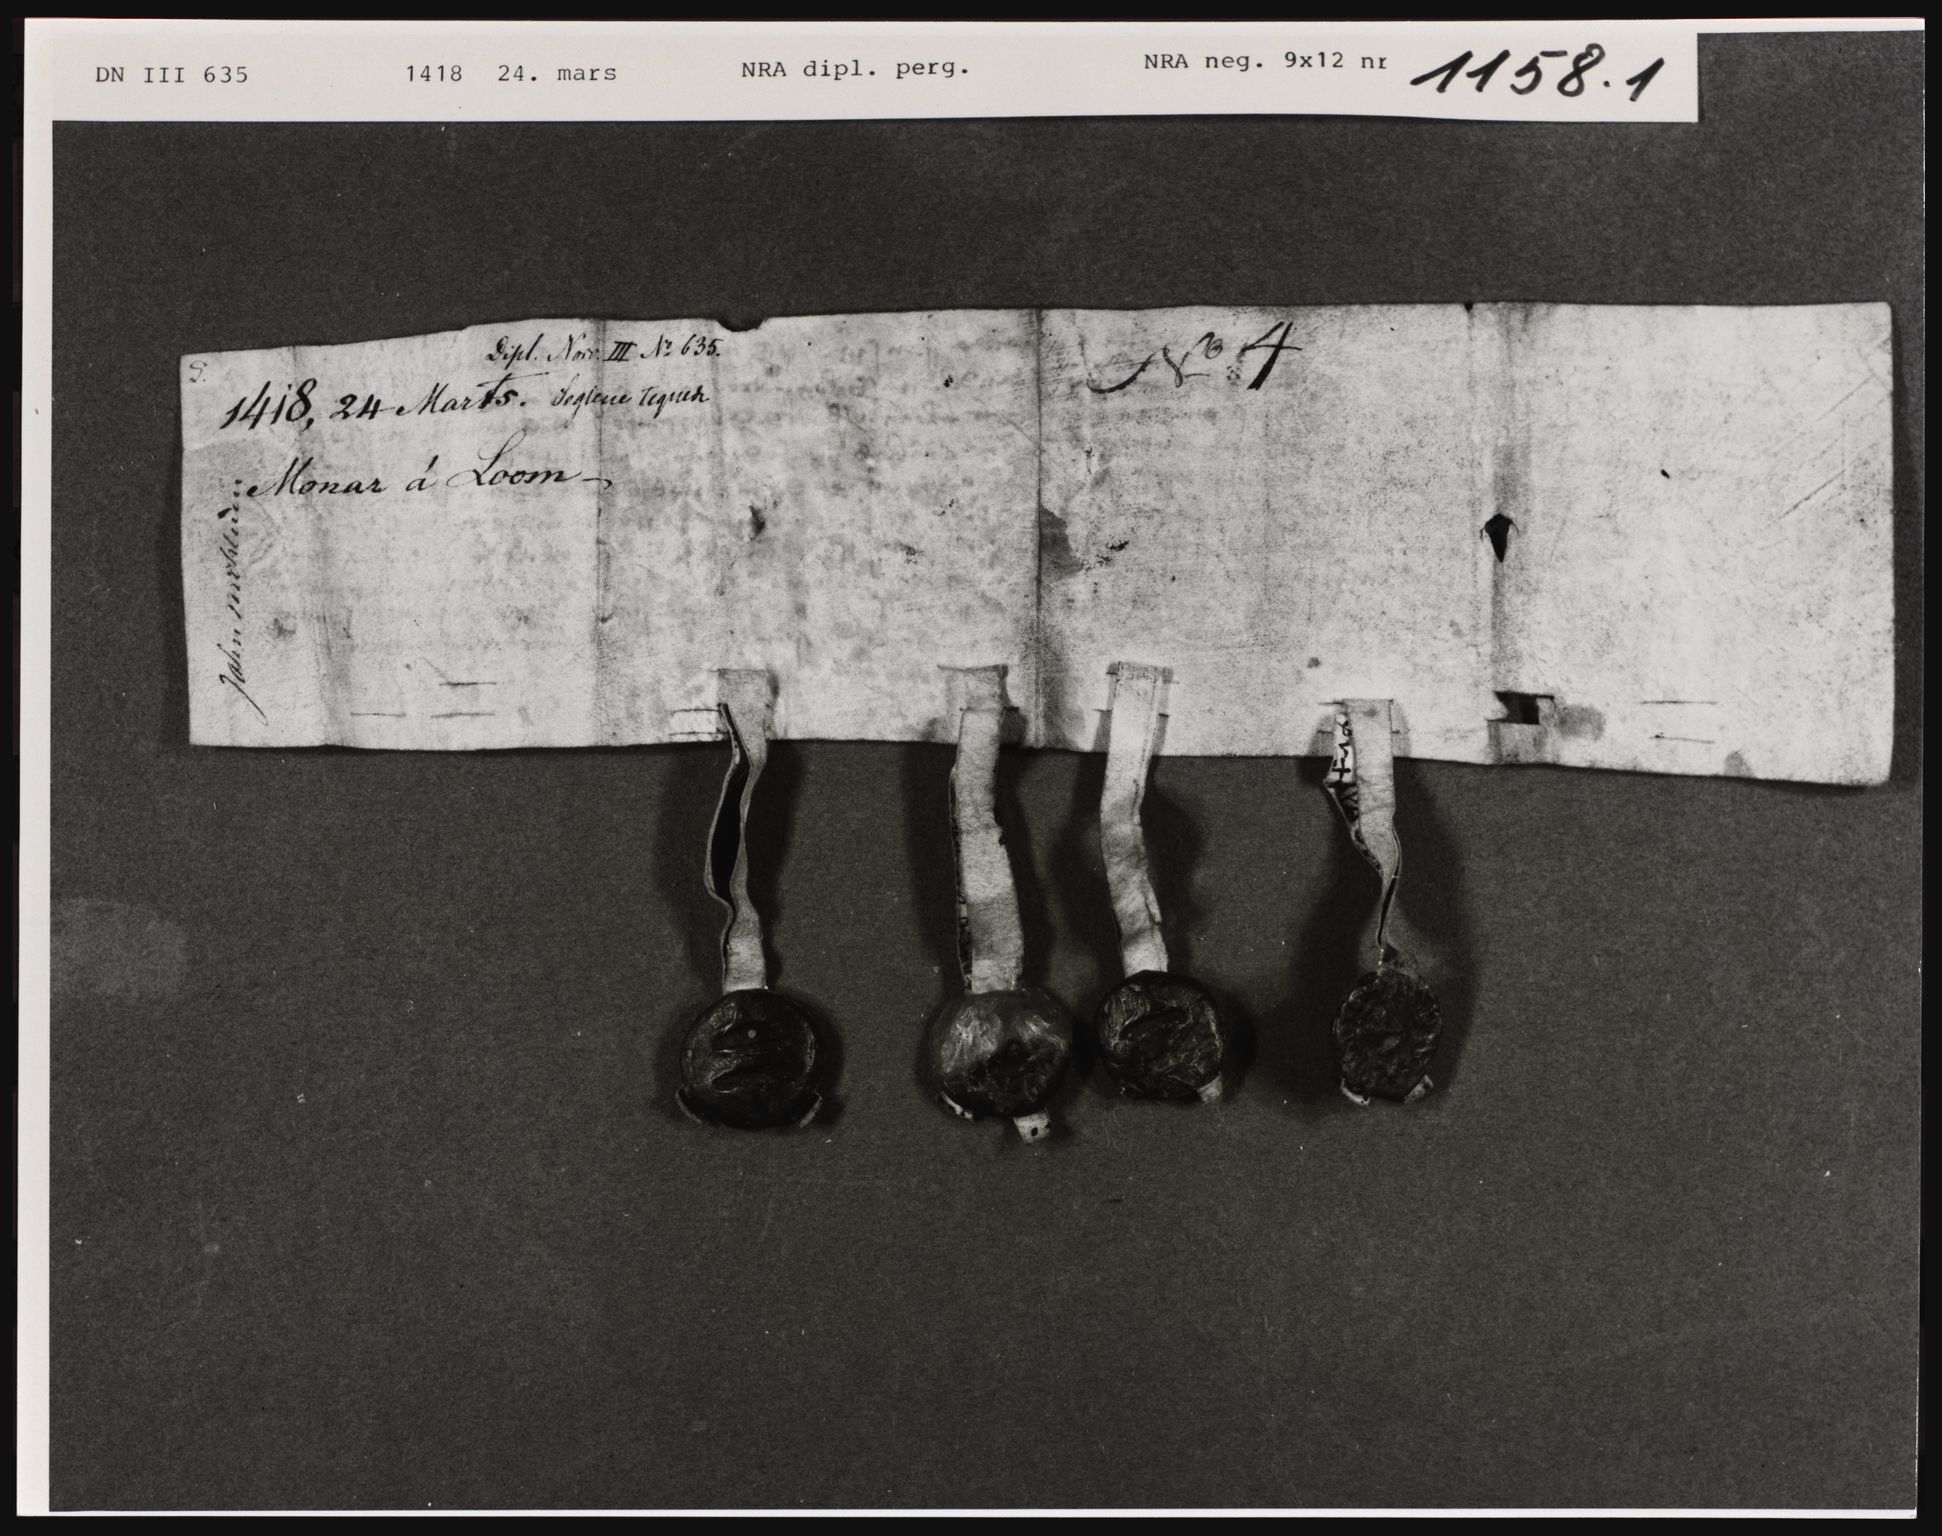 DN III 635 1418 24. mars NRA dipl. perg. NRA neg. 9x12 nr 1158.1
Dipl. Norv. III No 635.
No 4
S.
1418, 24 Marts. Seglene tegnede
Monar á Loom